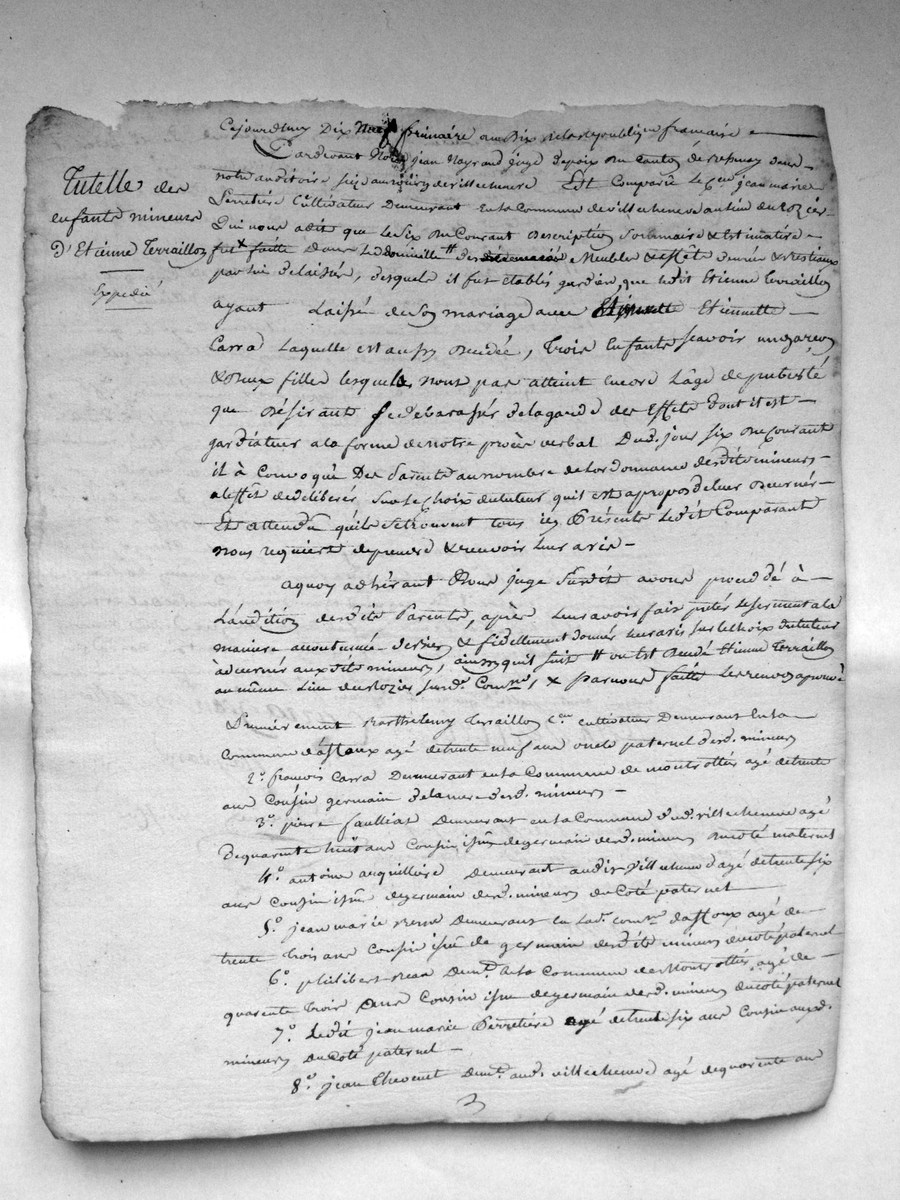 Tutelle des
enfants mineurs
D'Etienne Terraillon
Expedié
Cejourdhuy Dix frimaire an Dix de la Republique francaise
Pardevant Nous jean Noyrand juge depaix Du Canton de dans
notre auditoire sis de villecheneve Est Comparû le Cen jean marie
Ferretiere Cultivateur Demeurant en la Commune de villecheneve au lieu du Rozier
Qui nous a dit que le Six Du Courant Description Sommaire & Estimative
fut faitte Dans Le Domicille Meubles & effets Denrée & Bestiaux
par lui delaissés, desquels il fut etablis gardien, que ledit Etienne Terraillon
ayant Laissé de Son mariage avec Etiennette
Carra Laquelle est aussy Decedée, Trois Enfants scavoir un garcon
& Deux filles lesquels n'ont pas atteint encore L'âge de puberté
que Désirant se debarasser de la garde des Effets dont il est
gardiateur a la forme de notre procès verbal Dud. jour six Du Courant
il à Convoqué Des Parents au nombre de Lordonnance desdits mineurs
a leffet de deliberer Sur le Choix du tuteur quil est apropos de leur Decerner
Et attendu quils se trouvent tous icy Présents Ledit Comparant
nous requiert de prendre & recevoir leur avis
aquoy adhérant Nous juge Susdit avons procedé à
L'audition desdits Parents, après leur avoir fait preter le serment a la
maniere accoutumée de bien & fidellement donner leur avis sur le choix du tuteur
à decerner auxdits mineurs, ainsy quil suit // ou est Decedé Etienne Terraillon
au même Lieu du Rozier surd. Comne, & par nous faitte Le renvoy approuvé
Premierement Barthelemy Terraillon Cen cultivateur Demeurant en la
Commune d'affoux agé de trente neuf ans oncle paternel desd. mineurs
2.o françois Carra Demeurant en la Commune de montrottier agé de trente
ans Cousin germain de la mere desd. mineurs
3.o pierre faulliat Demeurant en la Commune dud. villecheneve agé
De quarente huit ans Cousin issu de germain desd. mineurs Du coté maternel
4.o antoine Demeurant audit villecheneve agé de trente six
ans cousin issu de germain desd. mineurs du coté paternel
5.o jean marie Demeurant en Lad. comne daffoux agé de
trente trois ans Cousin issu de germain desdits mineurs du coté paternel
6.o philibert Demt en la Commune de Montrottier, agé de
quarente trois ans Cousin issu de germain desd. mineurs du coté paternel
7.o Ledit jean marie Ferretiere agé de trente six ans Cousin auxd.
mineurs Du coté paternel
8.o jean Thevenet Demt aud. villecheneve agé de quarente ans